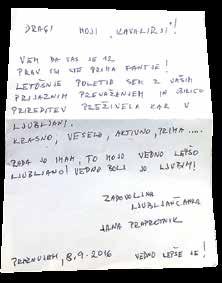 DRAGI MOJI "KAVALIRJI"!
VEM DA VAS JE 12
PRAV VSI STE PRIMA FANTJE!
LETOŠNJE POLETJE SEM Z VAŠIM
PRIJAZNIM PREVAŽANJEM IN OBILICO
PRIREDITEV PREŽIVELA KAR V
LJUBLJANI.
KRASNO, VESELO, AKTIVNO, PRIMA .....
RADA JO IMAM, TO MOJO VEDNO LEPŠO
LJUBLJANO! VEDNO BOLJ JO LJUBIM!
ZADOVOLJNA
LJUBLJANČANKA
JANA PRAPRETNIK
PRAZNUJEM, 8.9.2016 VEDNO LEPŠE JE!